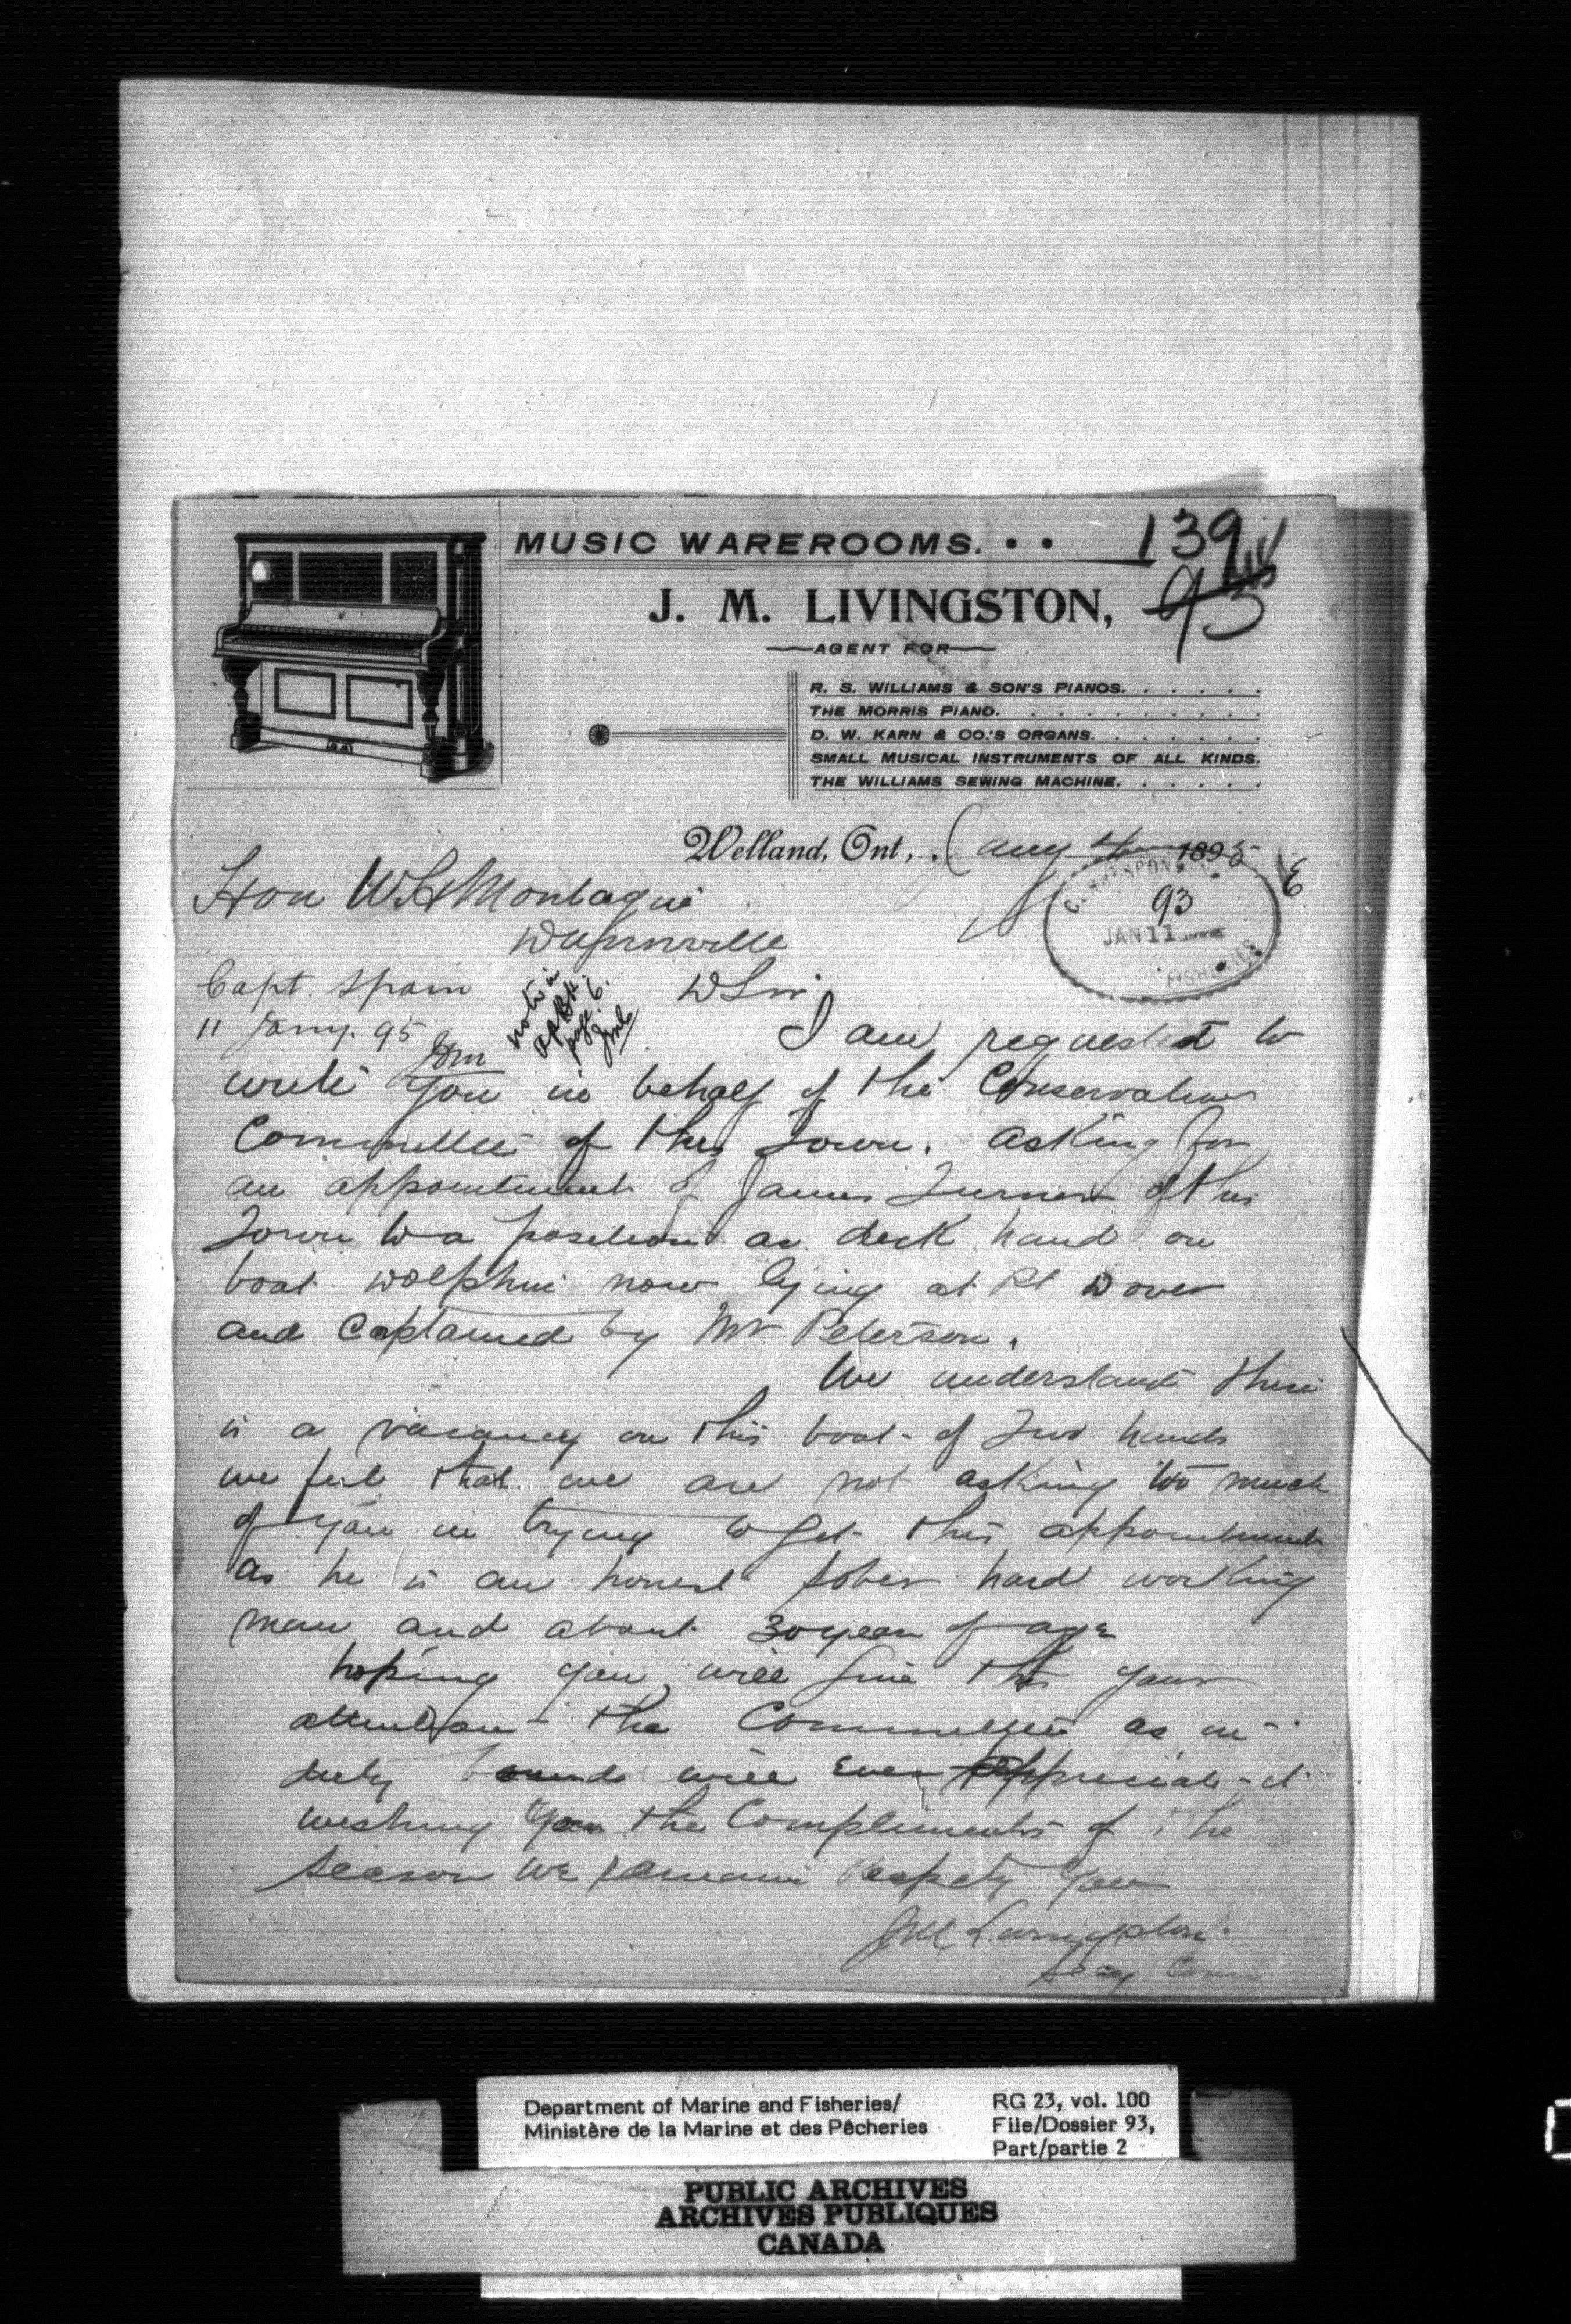 MUSIC WAREROOMS. • •
139
93
J. M. LIVINGSTON,
AGENT FOR
R. S. WILLIAMS & SON'S PIANOS. . . . . .
THE MORRIS PIANO. . . . . . . . . .
D. W. KARN & CO.'S ORGANS. . . . . . .
SMALL MUSICAL INSTRUMENTS OF ALL KINDS.
THE WILLIAMS SEWING MACHINE. . . . . .
Welland, Ont., 4 1895
Hon W H Montague
Dunnville
CORRESPONDENCE
93
JAN 11
FISHERIES
Capt. Spain
11 Jany. 95
note in
ap Bk.
page 6.
D Sir
I am requested to
write you in behalf of the Conservative
Committee of this Town. asking for
an appointment of James Turner of this
Town to a position as deck hand on
boat Dolphin now lying at Pt Dover
and Captained by Mr Peterson.
We understand there
is a vacancy on this boat of Two hands
we feel that we are not asking too much
of you in trying to get this appointment
as he is an honest sober hard working
man and about 30 years of age
hoping you will give this your
attention the Committee as in
duty bound will Ever appreciate it
wishing you the Compliments of the
Season We remain Respcty Yours
JM Livingston
Secy Com
Department of Marine and Fisheries/
Ministère de la Marine et des Pêcheries
RG 23, vol. 100
File/Dossier 93,
Part/partie 2
PUBLIC ARCHIVES
ARCHIVES PUBLIQUES
CANADA